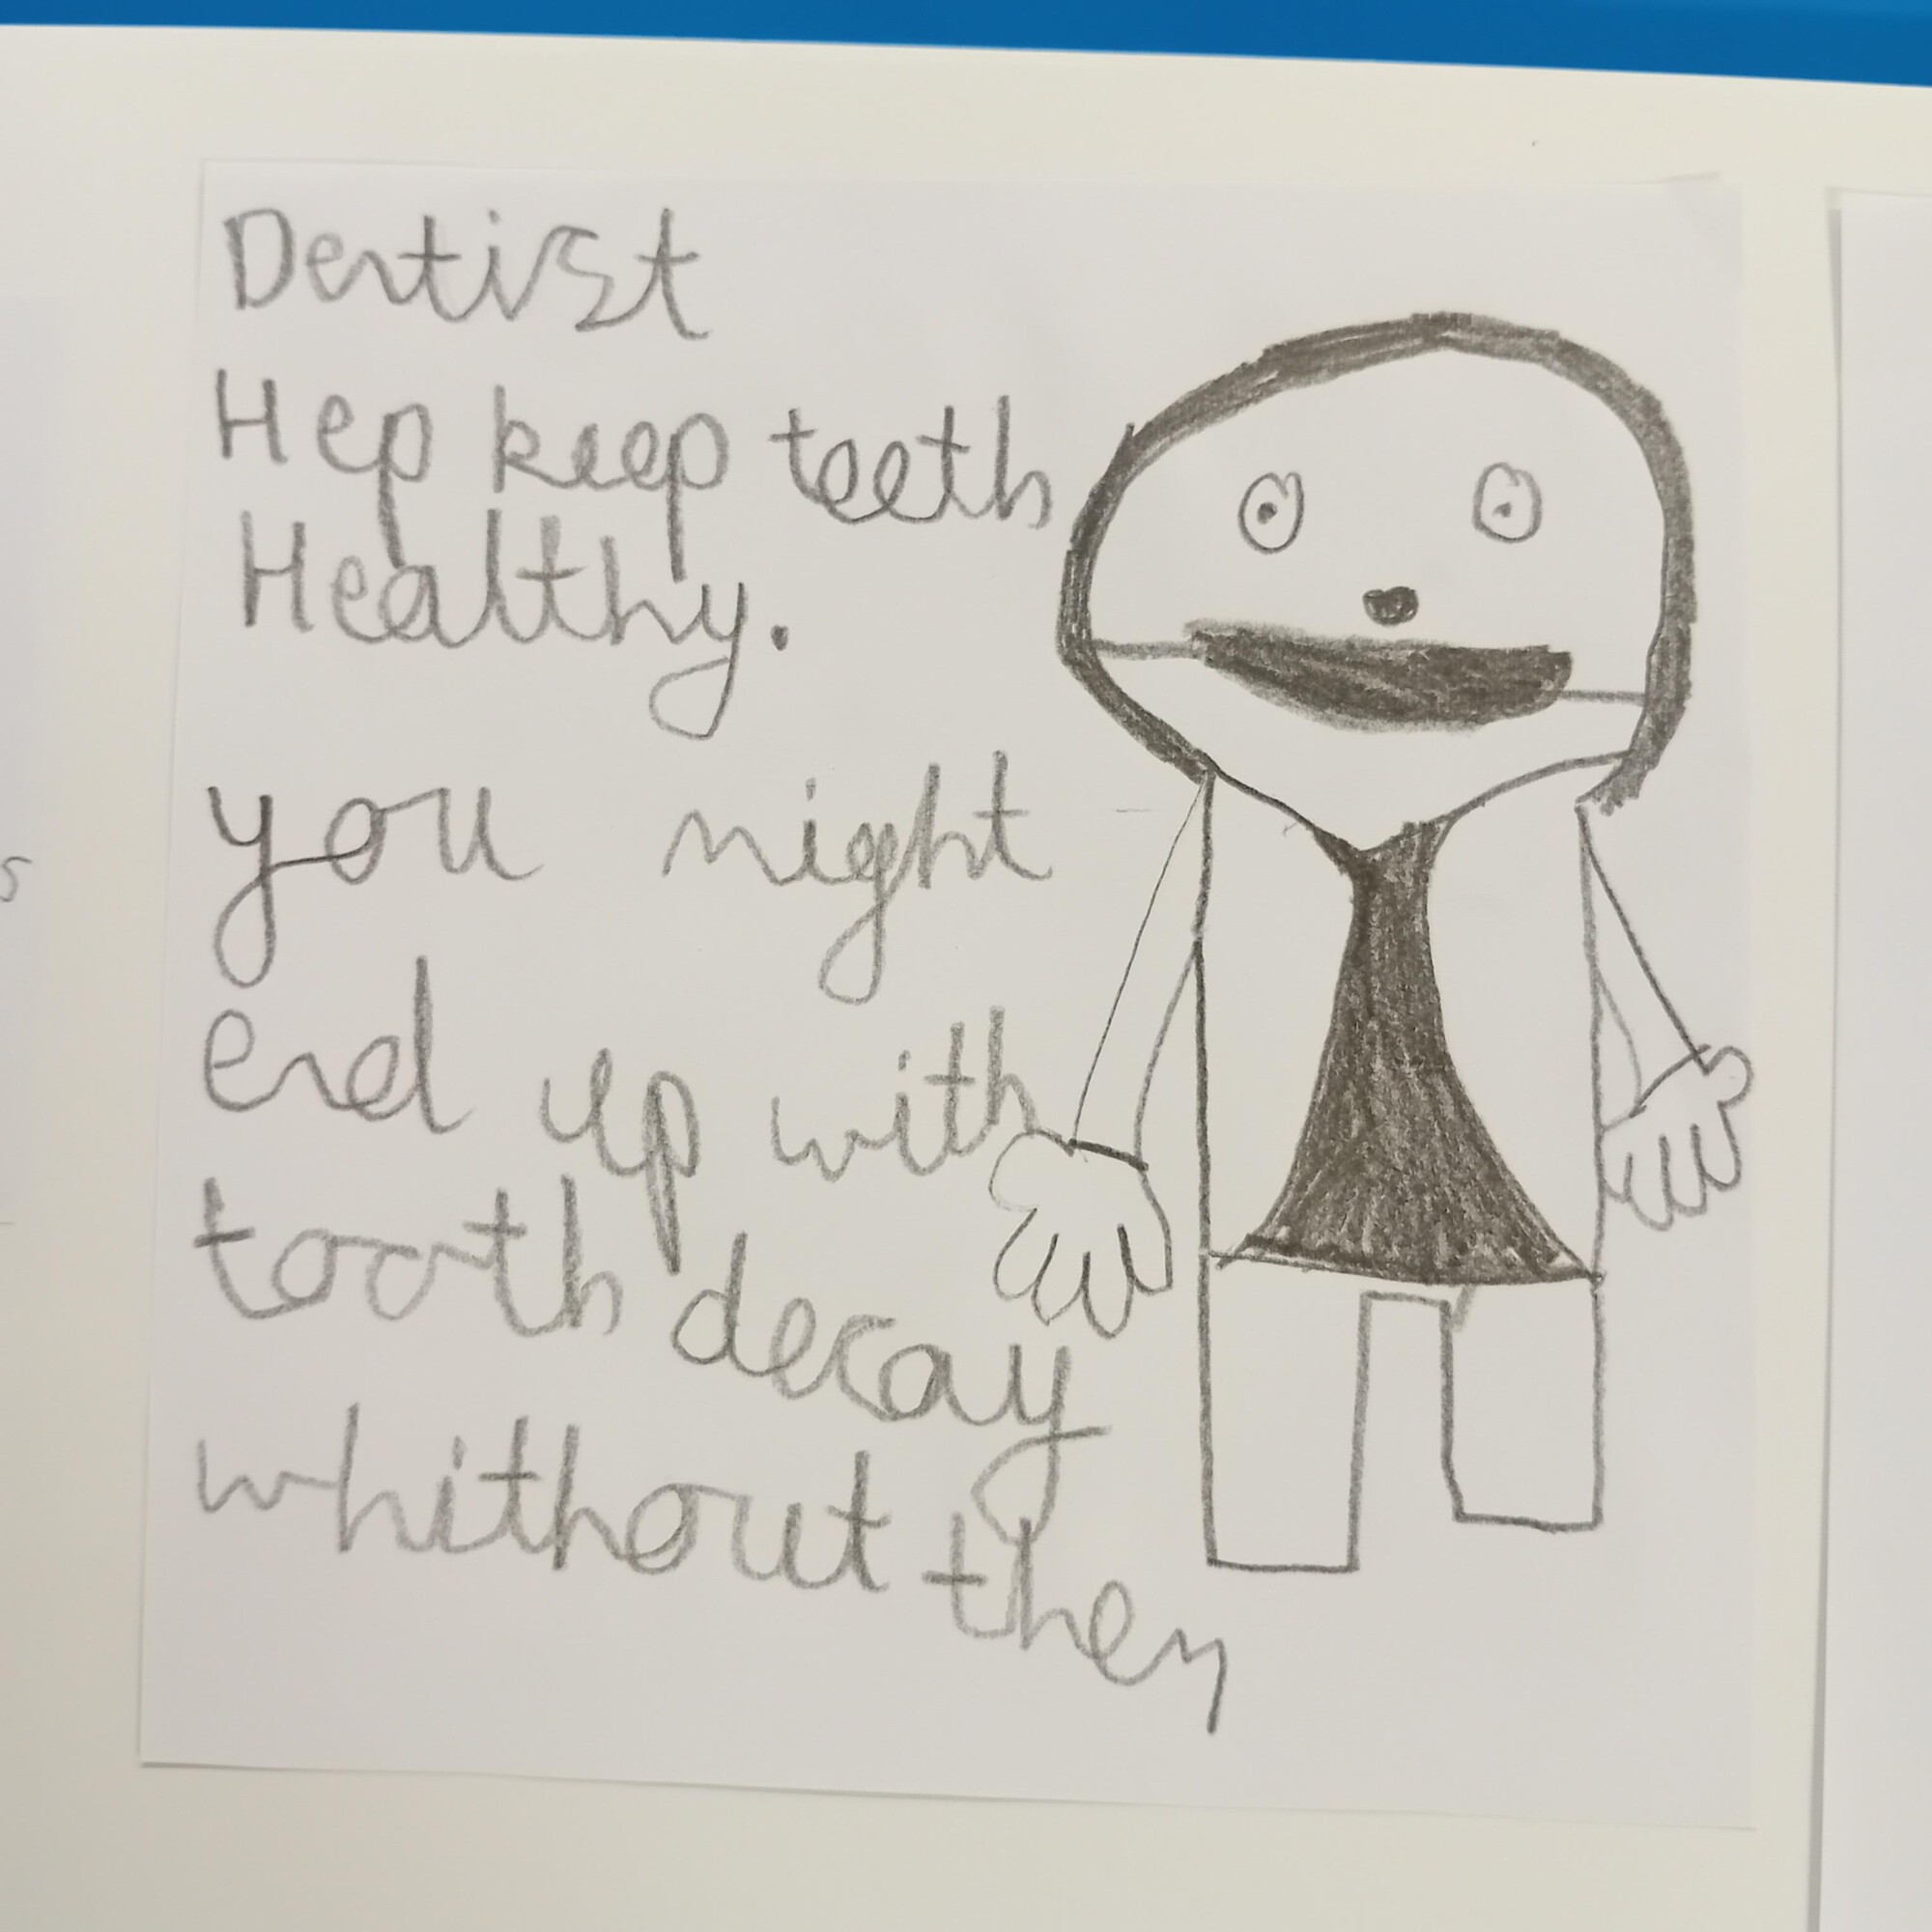 Dentist
Hep keep teeth
Healthy.
you might
end up with
tooth decay
whithout them
s